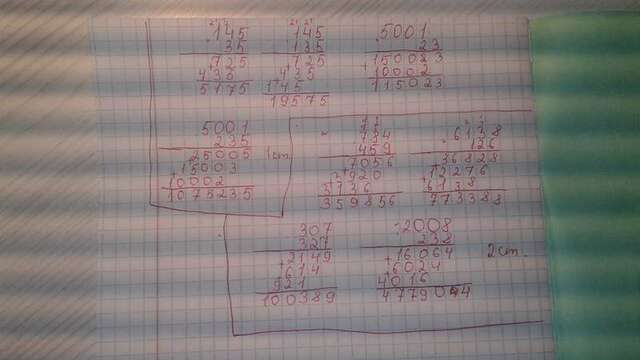 145
35
725
435
5175
145
135
725
435
145
19575
5001
23
150023
10002
115023
5001
235
25005
15003
10002
1075235
1 ст.
459
7056
3136
359856
6138
126
36828
12276
6138
773388
307
327
2149
614
921
100389
2008
238
16064
6024
4016
2 ст.